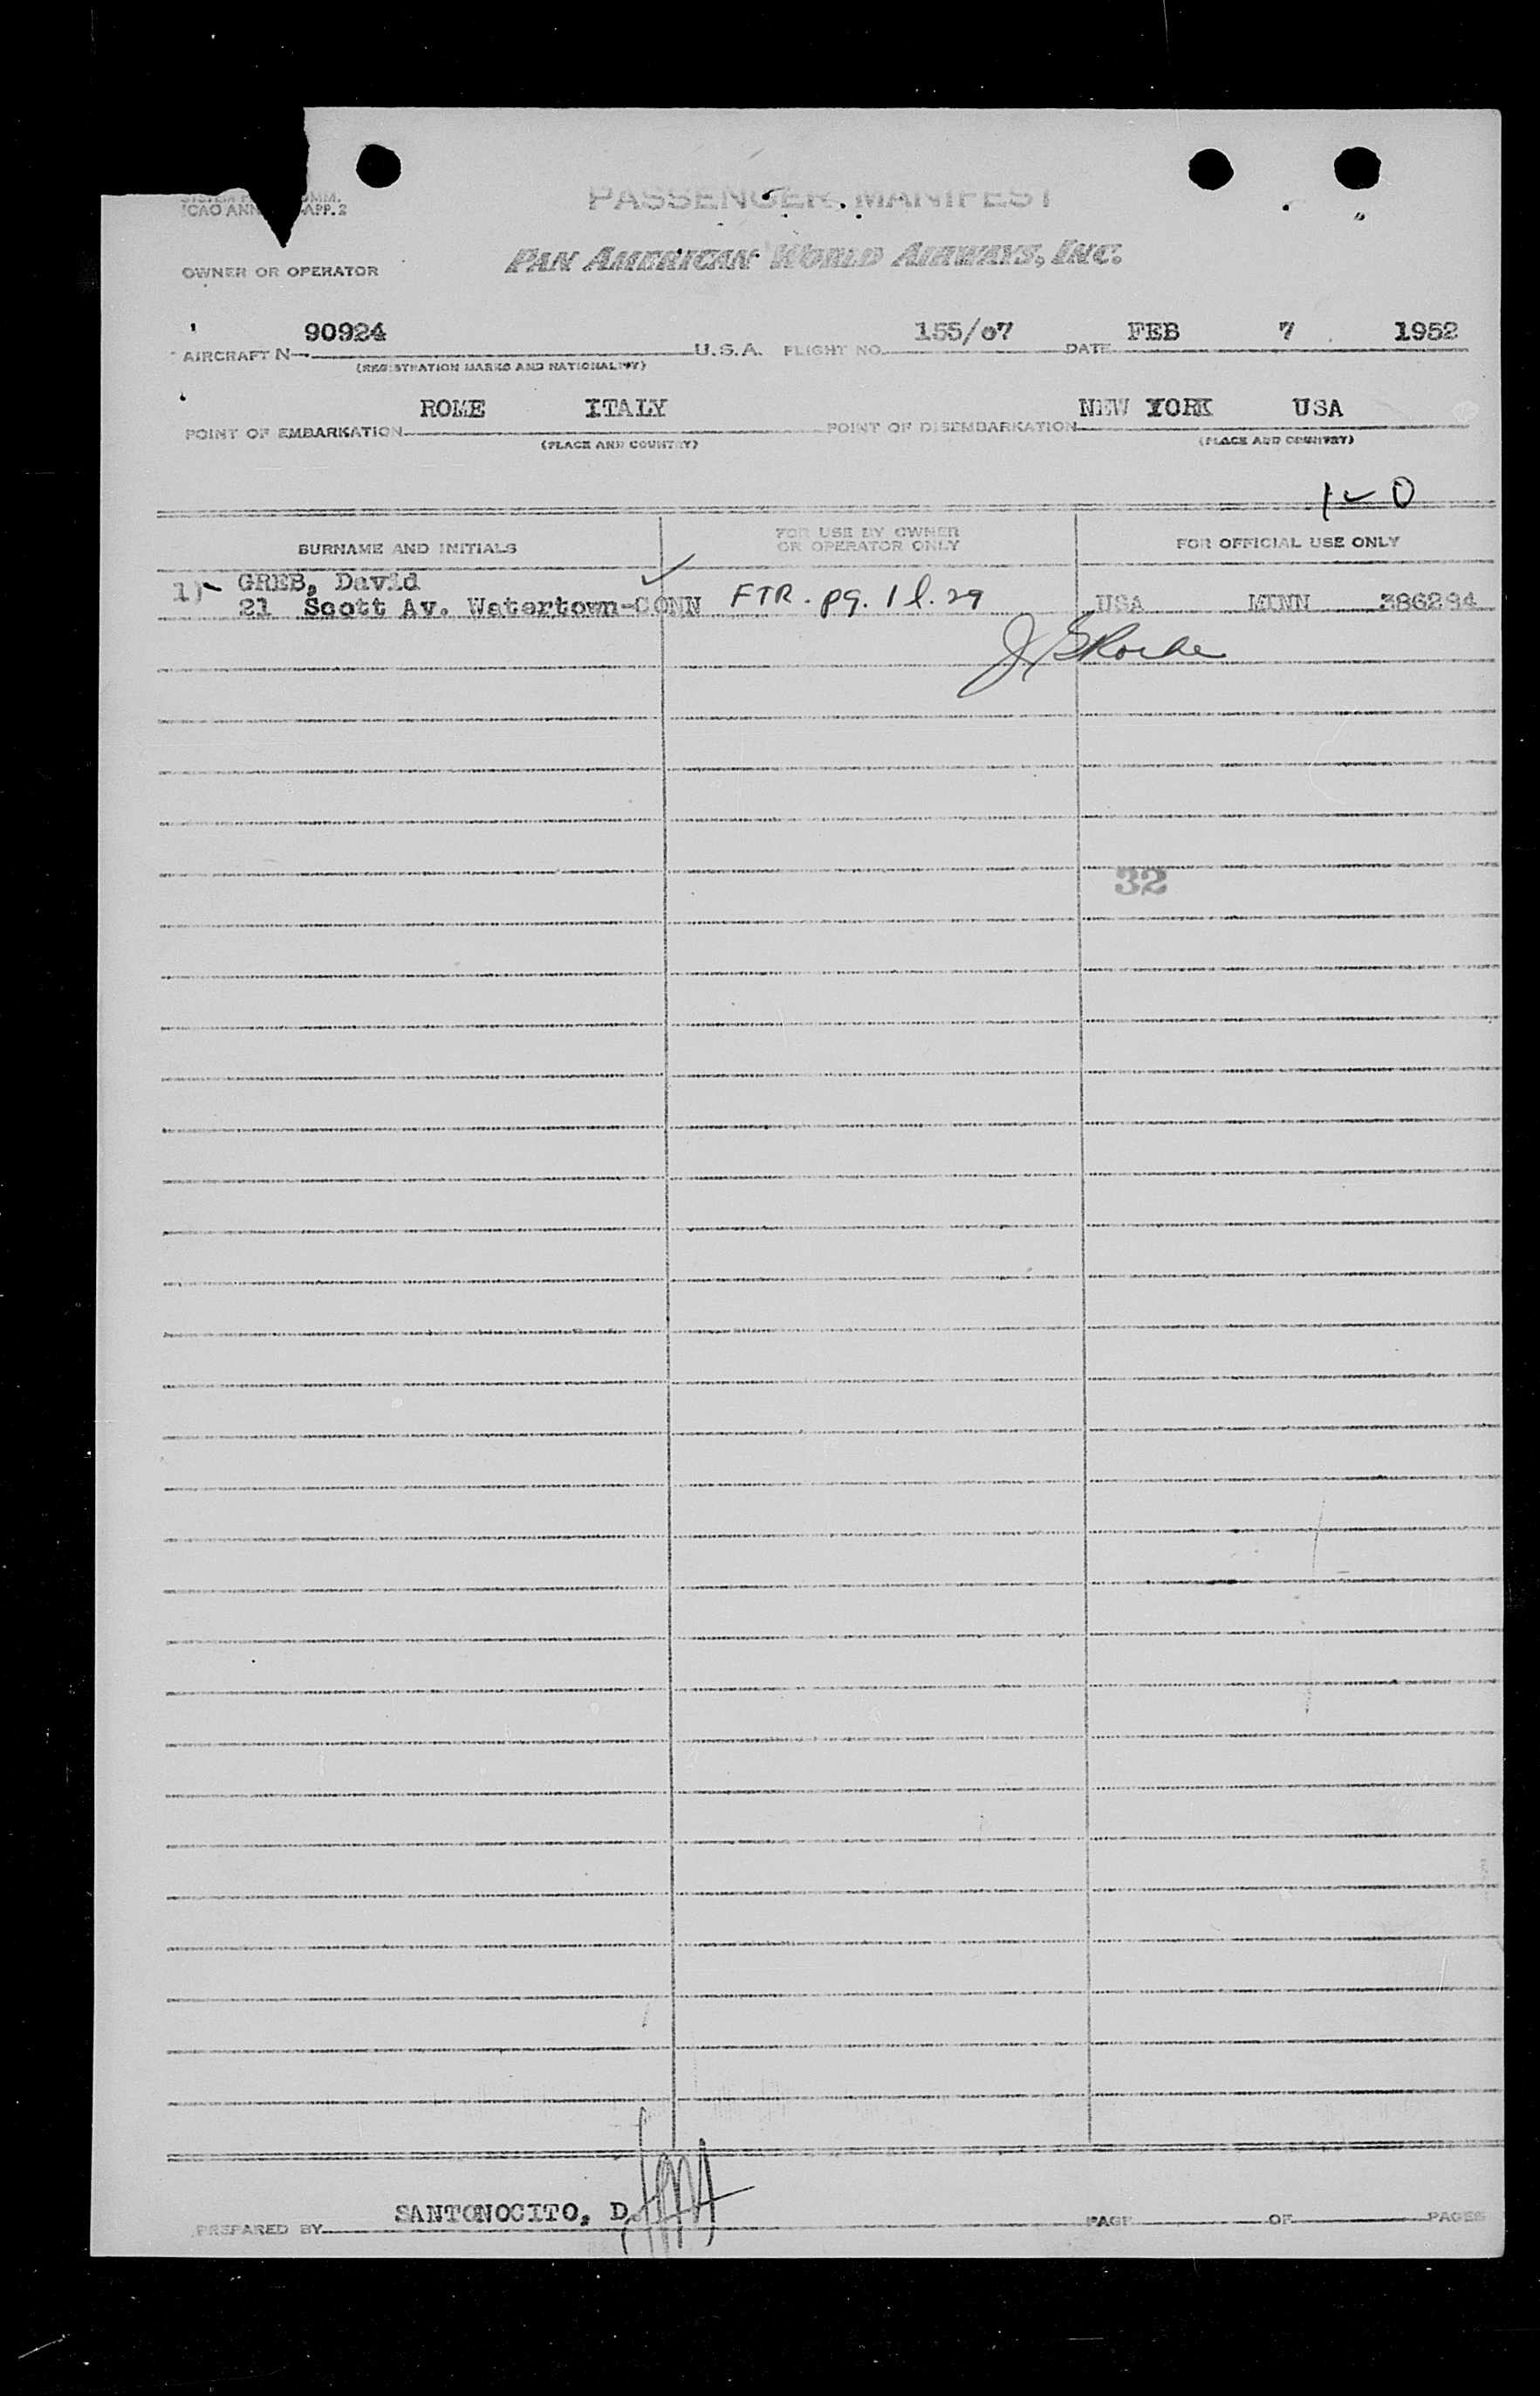 ICAO ANN APP. 2
PASSENGER MANIFEST
PAN AMERICAN WORLD AIRWAYS, INC.
OWNER OR OPERATOR
90924 155/07 FEB 7 1952
AIRCRAFT N- U.S.A. FLIGHT NO. DATE
(REGISTRATION MARKS AND NATIONALITY)
ROME ITALY NEW YORK USA
POINT OF EMBARKATION POINT OF DISEMBARKATION
(PLACE AND COUNTRY) (PLACE AND COUNTRY)
1 0
SURNAME AND INITIALS FOR USE BY OWNER OR OPERATOR ONLY FOR OFFICIAL USE ONLY
1)- GREB, David
21 Scott Av. Watertown-CONN FTR. pg. 1 l. 29 USA MINN 386284
32
SANTONOCITO, D.
PREPARED BY PAGE OF PAGES